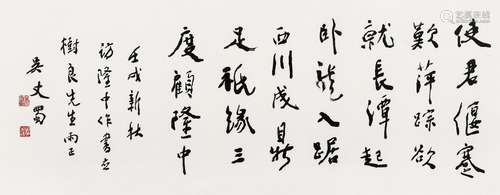 使君偃蹇
歎萍踪欲
就長潭起
卧龍入踞
西川成鼎
足祇緣三
度顧隆中
壬戌新秋
訪隆中作書应
樹良先生雨正
吴丈蜀